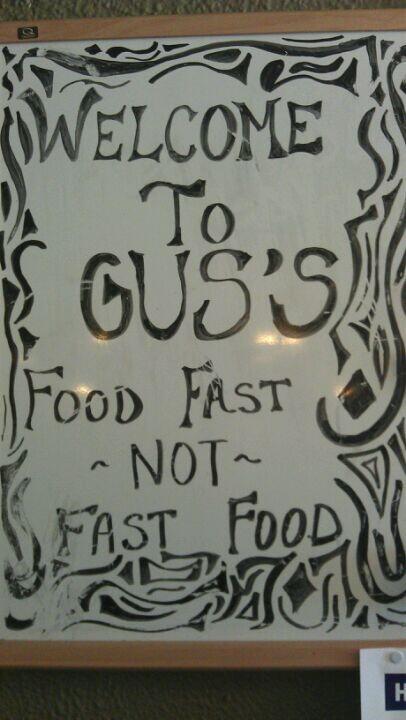 WELCOME
TO
GUS'S
FOOD FAST
~NOT~
FAST FOOD
H